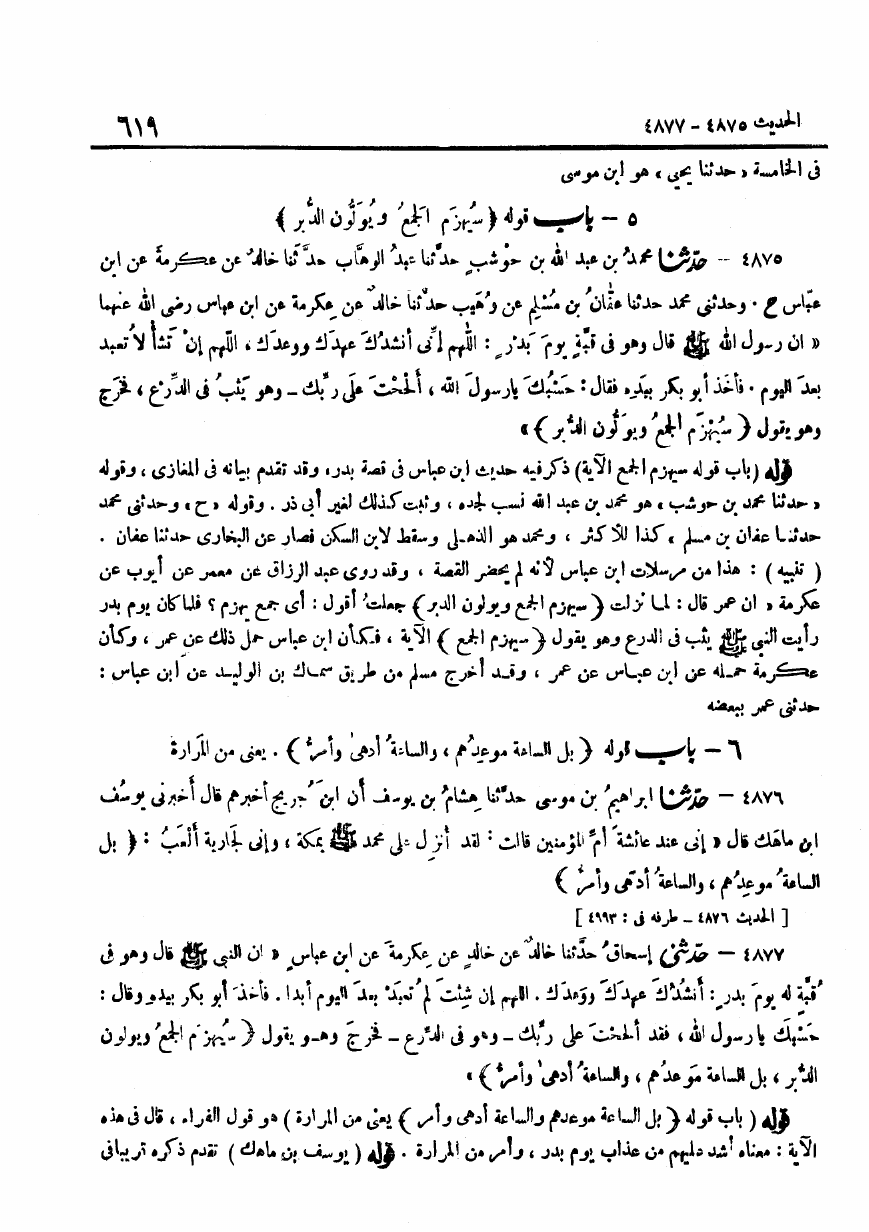 الحديث ٤٨٧٥ - ٤٨٧٧ ٦١٩
فى الخامسة « حدثنا يحيى » هو ابن موسى
٥ - باب قوله ﴿ سَيُهزَم الجمعُ ويُوَلُّون الدُّبر ﴾
٤٨٧٥ - حدّثنا محمدُ بن عبد الله بن حَوْشبٍ حدَّثنا عبدُ الوهَّاب حدَّثنا خالدٌ عن عكرمةَ عن ابن
عبّاس ح . وحدثنى محمد حدثنا عفّانُ بن مُسْلِم عن وُهَيب حدثنا خالدٌ عن عِكرمة عن ابن عباس رضى الله عنهما
« ان رسول الله ﷺ قال وهو فى قبَّةٍ يومَ بَدْرٍ : اللهم إنّى أنشدُكَ عهدَكَ ووعدَك ، اللهم إنْ تَشأْ لا تُعبد
بعدَ اليوم . فأخَذ أبو بكر بيَدِه فقال : حَسْبُكَ يا رسولَ الله ، أَلْححْتَ على ربِّك - وهو يَثبُ فى الدِّرْع ، فخرَج
وهو يقول ﴿ سيُهْزَم الجمعُ ويوَلُّون الدُّبر ﴾ »
قوله ( باب قوله سيهزم الجمع الآية ) ذكر فيه حديث ابن عباس فى قصة بدر ، وقد تقدم بيانه فى المغازى ، وقوله
« حدثنا محمد بن حوشب » هو محمد بن عبد الله نسب لجده ، وثبت كذلك لغير أبى ذر . وقوله « ح » وحدثنى محمد
حدثنا عفان بن مسلم » كذا للأكثر ، ومحمد هو الذهلى وسقط لابن السكن فصار عن البخارى حدثنا عفان .
( تنبيه ) : هذا من مرسلات ابن عباس لأنه لم يحضر القصة ، وقد روى عبد الرزاق عن معمر عن أيوب عن
عكرمة « ان عمر قال : لما نزلت ﴿ سيهزم الجمع ويولون الدبر ﴾ جعلتُ أقول : أى جمع يهزم ؟ فلما كان يوم بدر
رأيت النبى ﷺ يثب فى الدرع وهو يقول ﴿ سيهزم الجمع ﴾ الآية ، فكأن ابن عباس حمل ذلك عن عمر ، وكأن
عكرمة حمله عن ابن عباس عن عمر ، وقد أخرج مسلم من طريق سماك بن الوليد عن ابن عباس :
حدثنى عمر ببعضه
٦ - باب قوله ﴿ بل الساعة موعِدُهم ، والساعةُ أدهىٰ وأمرُّ ﴾ . يعنى من المَرارة
٤٨٧٦ - حدّثنا ابراهيمُ بن موسى حدَّثنا هشامُ بن يوسف أن ابنَ جُريج أخبرهم قال أخبرنى يوسُف
ابن ماهَك قال « إنى عند عائشةَ أمِّ المؤمنين قالت : لقد أُنزِل على محمد ﷺ بمكة ، وإنى لَجارية أَلْعَبُ : ﴿ بل
الساعةُ موعِدُهم ، والساعةُ أدهَى وأمرُّ ﴾
[ الحديث ٤٨٧٦ - طرفه فى : ٤٩٩٣ ]
٤٨٧٧ - حدّثنى إسحاقُ حدَّثنا خالدٌ عن خالدٍ عن عِكرمةَ عن ابن عباسٍ « ان النبى ﷺ قال وهو فى
قُبَّةٍ له يومَ بدرٍ : أَنشُدُكَ عهدَكَ ووَعدَك . اللهم إن شِئتَ لم تُعبَدْ بعدَ اليوم أبدا . فأخذَ أبو بكر بيدِه وقال :
حَسْبُكَ يا رسول الله ، فقد ألححْتَ على ربِّك - وهو فى الدِّرع - فخرجَ وهو يقول ﴿ سيُهزَم الجمعُ ويولون
الدُّبر ، بل الساعة مَوعدُهم ، والساعةُ أدهىٰ وأمرُّ ﴾ »
قوله ( باب قوله ﴿ بل الساعة موعدهم والساعة أدهى وأمر ﴾ يعنى من المرارة ) هو قول الفراء ، قال فى هذه
الآية : معناه أشد عليهم من عذاب يوم بدر ، وأمر من المرارة . قوله ( يوسف بن ماهك ) تقدم ذكره قريبا فى